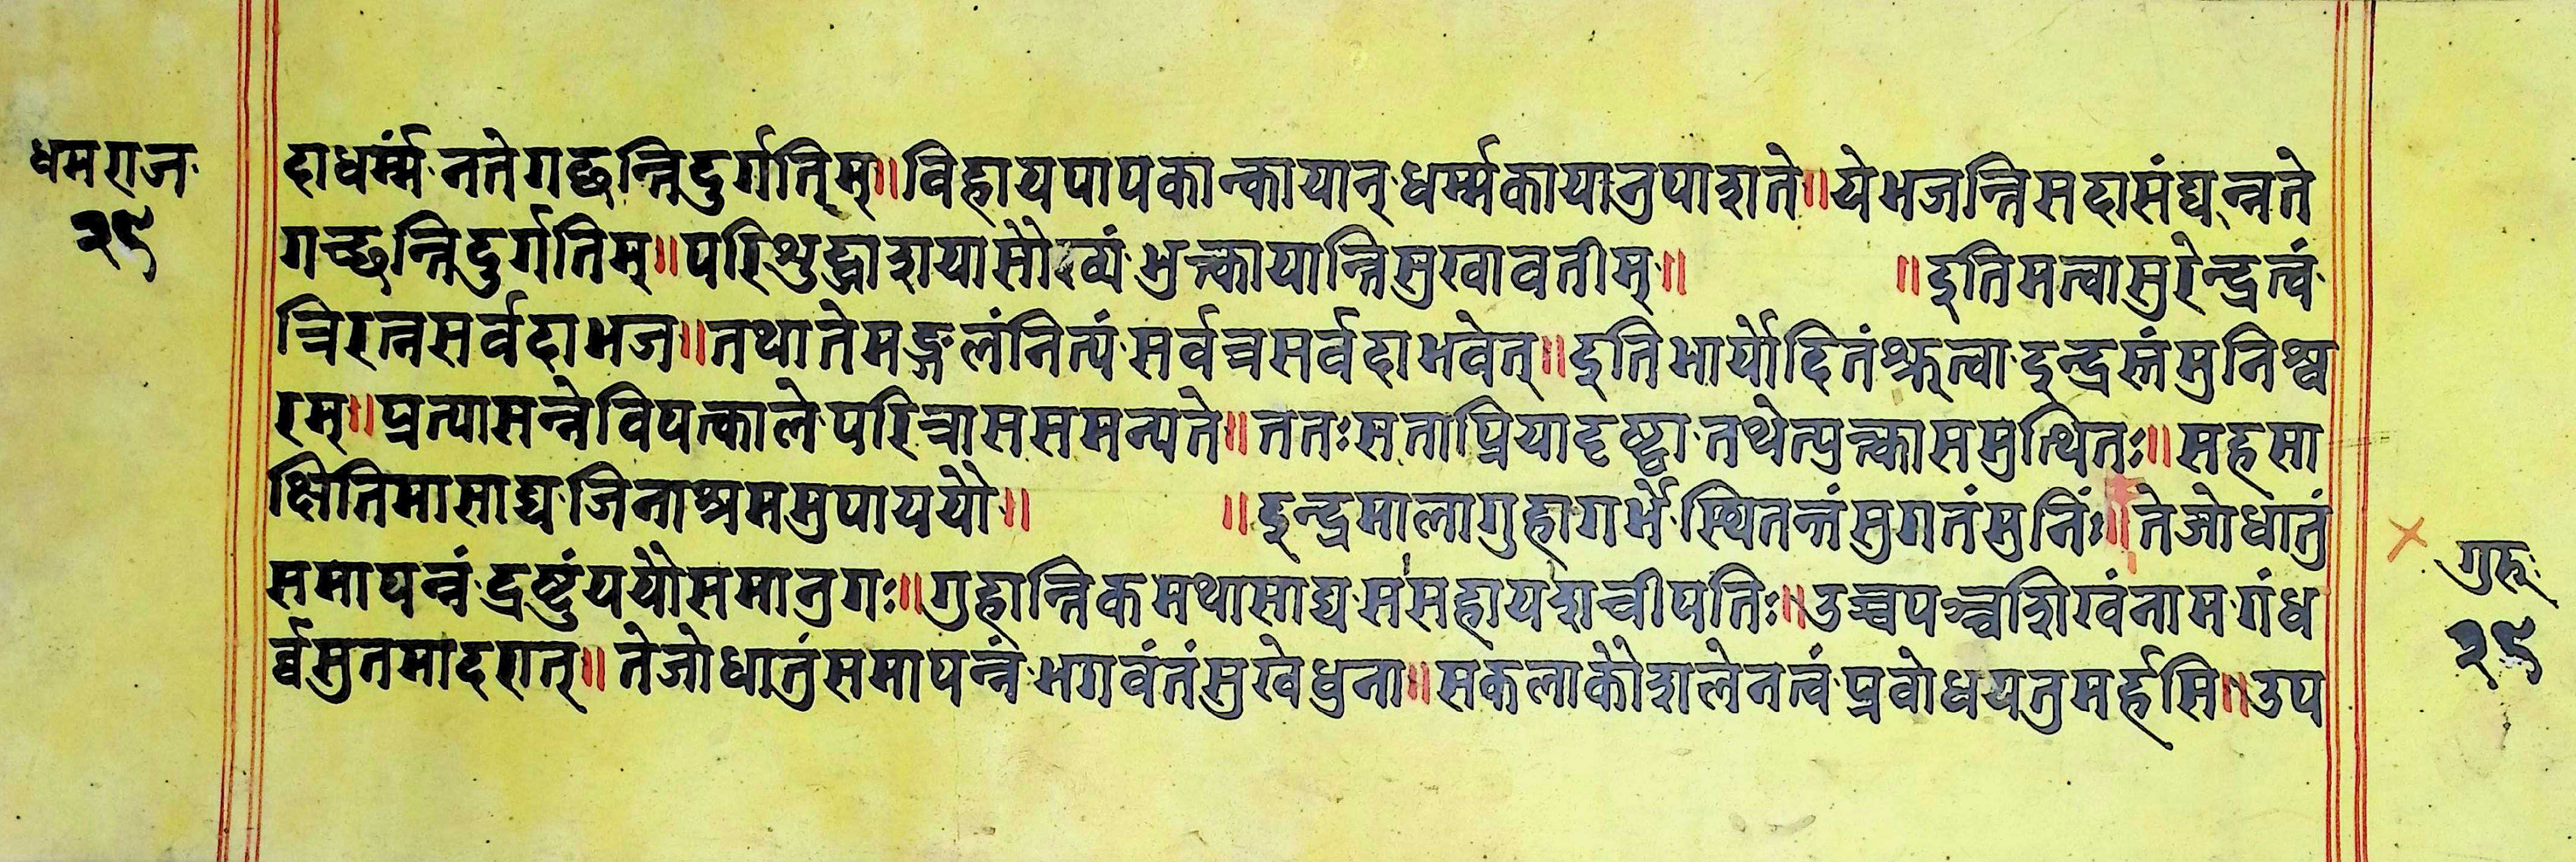 धमराज
२९
दाधर्म्मं नते गच्छन्तिदुर्गतिम्॥विहायपापकान्कायान् धर्म्मकायानुपाशते॥येभजन्तिसदासंघन्नते
गच्छन्तिदुर्गतिम्॥परिशुद्धाशयासौख्यं भुक्त्वायान्तिसुखावतीम्॥ ॥इतिमत्वासुरेन्द्रत्वं
त्रिरत्नसर्वदाभज॥तथातेमङ्गलंनित्यं सर्वत्रसर्वदाभवेत्॥इतिभार्योदितंश्रुत्वा इन्द्रस्तंमुनिश्व
रम्॥प्रत्यासन्नेविपत्कालेपरित्राससमन्यते॥ततःसताप्रियादृष्ट्वा तथेत्युक्त्वासमुत्थितः॥सहसा
क्षितिमासाद्य जिनाश्रममुपाययौ॥ ॥इन्द्रमालागुहागर्भे स्थितन्तंसुगतंमुनिं॥तेजोधातुं
समापन्नं द्रष्टुंययौसमानुगः॥गुहान्तिकमथासाद्य ससहायशचीपतिः॥उच्चपञ्चशिखंनाम गंध
र्व्वसुतमादरात्॥तेजोधातुंसमापन्नं भगवंतंसुखेधुना॥सकलाकौशलेनत्वं प्रबोधयतुमर्हसि॥उप
गुरु
२९